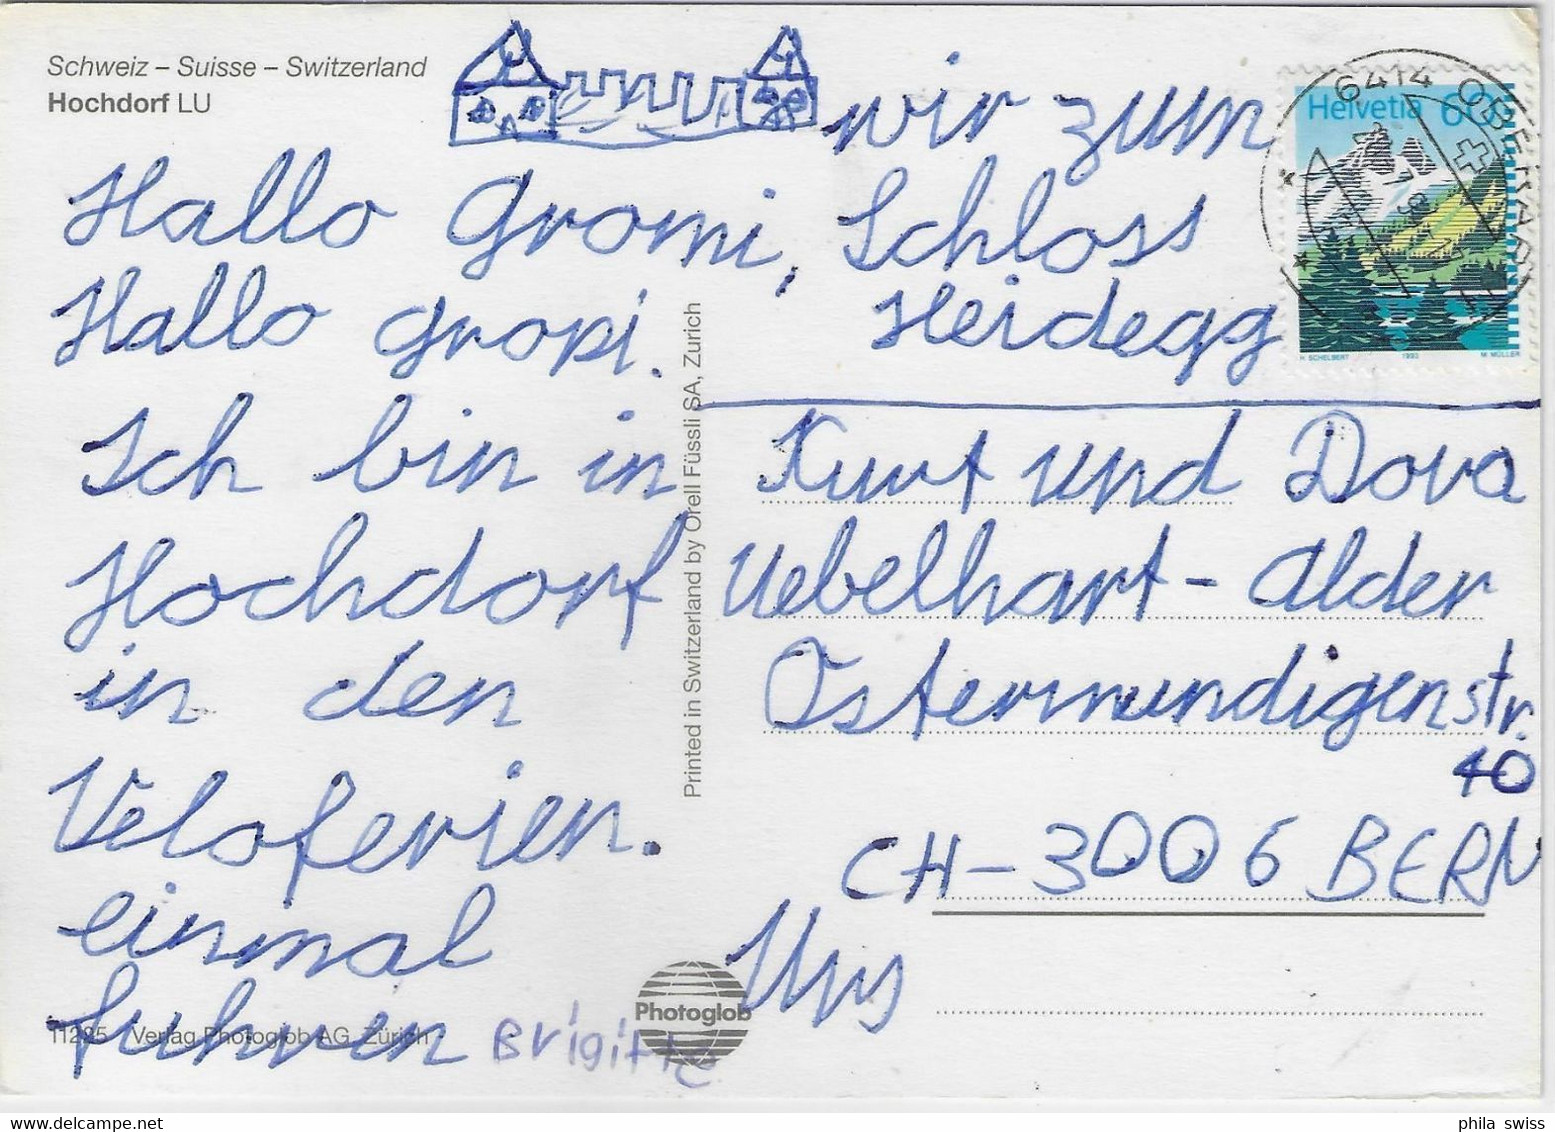 Schweiz – Suisse – Switzerland
Hochdorf LU
Hallo Gromi,
Hallo Gropi.
Ich bin in
Hochdorf
in den
Veloferien.
einmal
fuhren
wir zum
Schloss
Heidegg
Urs
Brigitte
Kurt und Dora
Uebelhart-Alder
Ostermundigenstr.
40
CH-3006 BERN
Helvetia 60
H. SCHELBERT 1993 M. MÜLLER
6414 OBERARTH
Printed in Switzerland by Orell Füssli SA, Zurich
11225 Verlag Photoglob AG, Zürich
Photoglob
phila swiss